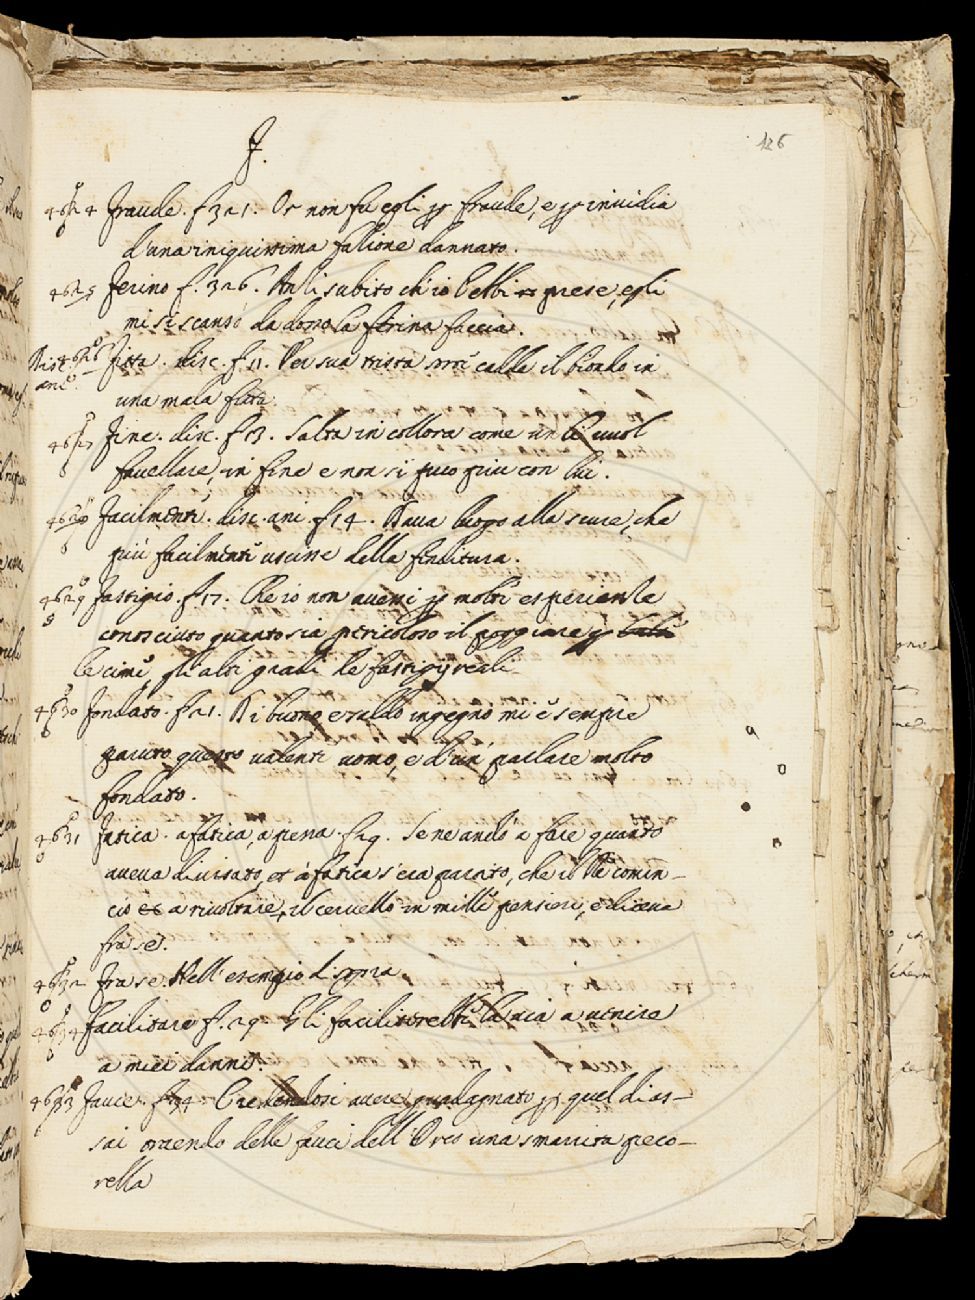 F.
126
4624 Fraude. f 321. Or non fu egli p fraude, e p invidia
d'una iniquissima fatione dannato.
4625 Ferino f. 326. Anzi subito ch'io l'ebbi prese, egli
mi si scansò da dosso la ferina faccia.
4626 Fitta. disc. f 11. Per sua trista calla il biondo in
una mala fitta.
4627 Fine. disc. f 13. Salta in collora come un le vuol
favellare, in fine e non si puo piu con lui.
4628 Facilmente. disc. anc. f 14. Dava luogo alla scure, che
piú facilmente uscisse della fenditura.
4629 Fastigio. f 17. Che io non avessi p molte esperienze
conosciuto quanto sia pericoloso il poggiare p
le cime gli alti gradi le fastigij reali
4630 Fondato. f 21. Di buono e saldo ingegno mi è sempre
paruto questo valente uomo, e d'un parlare molto
fondato.
4631 Fatica. a fatica, a pena. f 29. Se ne andò a fare quanto
aveva divisato, et à fatica s'era partito, che comin-
ciò a rivoltare, il cervello in mille pensieri, e diceva
fra se.
4632 Fra se. Nell'esempio d. sopra
4634 Facilitare f. 29 Gli faciliterebbe la via a venire
a miei danni.
4633 Fauce. f 34 Credendosi avere guadagnato p quel dì as-
sai traendo delle fauci dell'Orco una smarrita peco-
rella